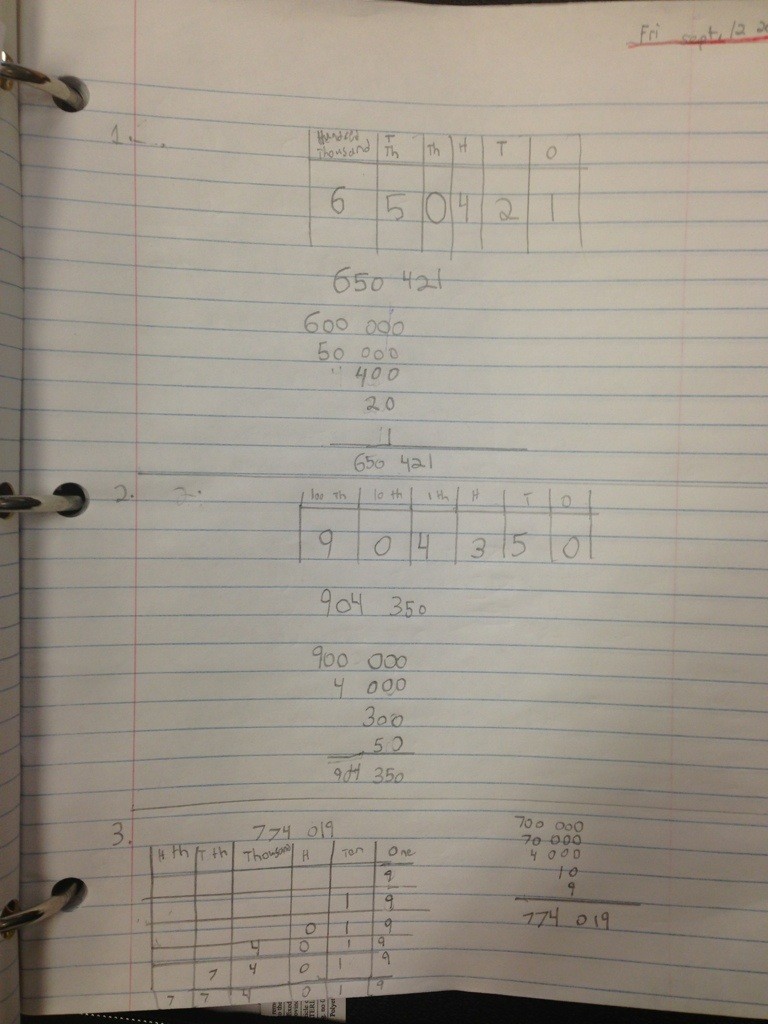 Fri sept, 12
1.
Hundred Thousand T Th Th H T O
6 5 0 4 2 1
650 421
600 000
50 000
400
20
1
650 421
2.
100 Th 10 th 1 th H T O
9 0 4 3 5 0
904 350
900 000
4 000
300
50
904 350
3.
774 019
H th T th Thousand H Ten One
9
1 9
0 1 9
4 0 1 9
7 4 0 1 9
7 7 4 0 1 9
700 000
70 000
4 000
10
9
774 019